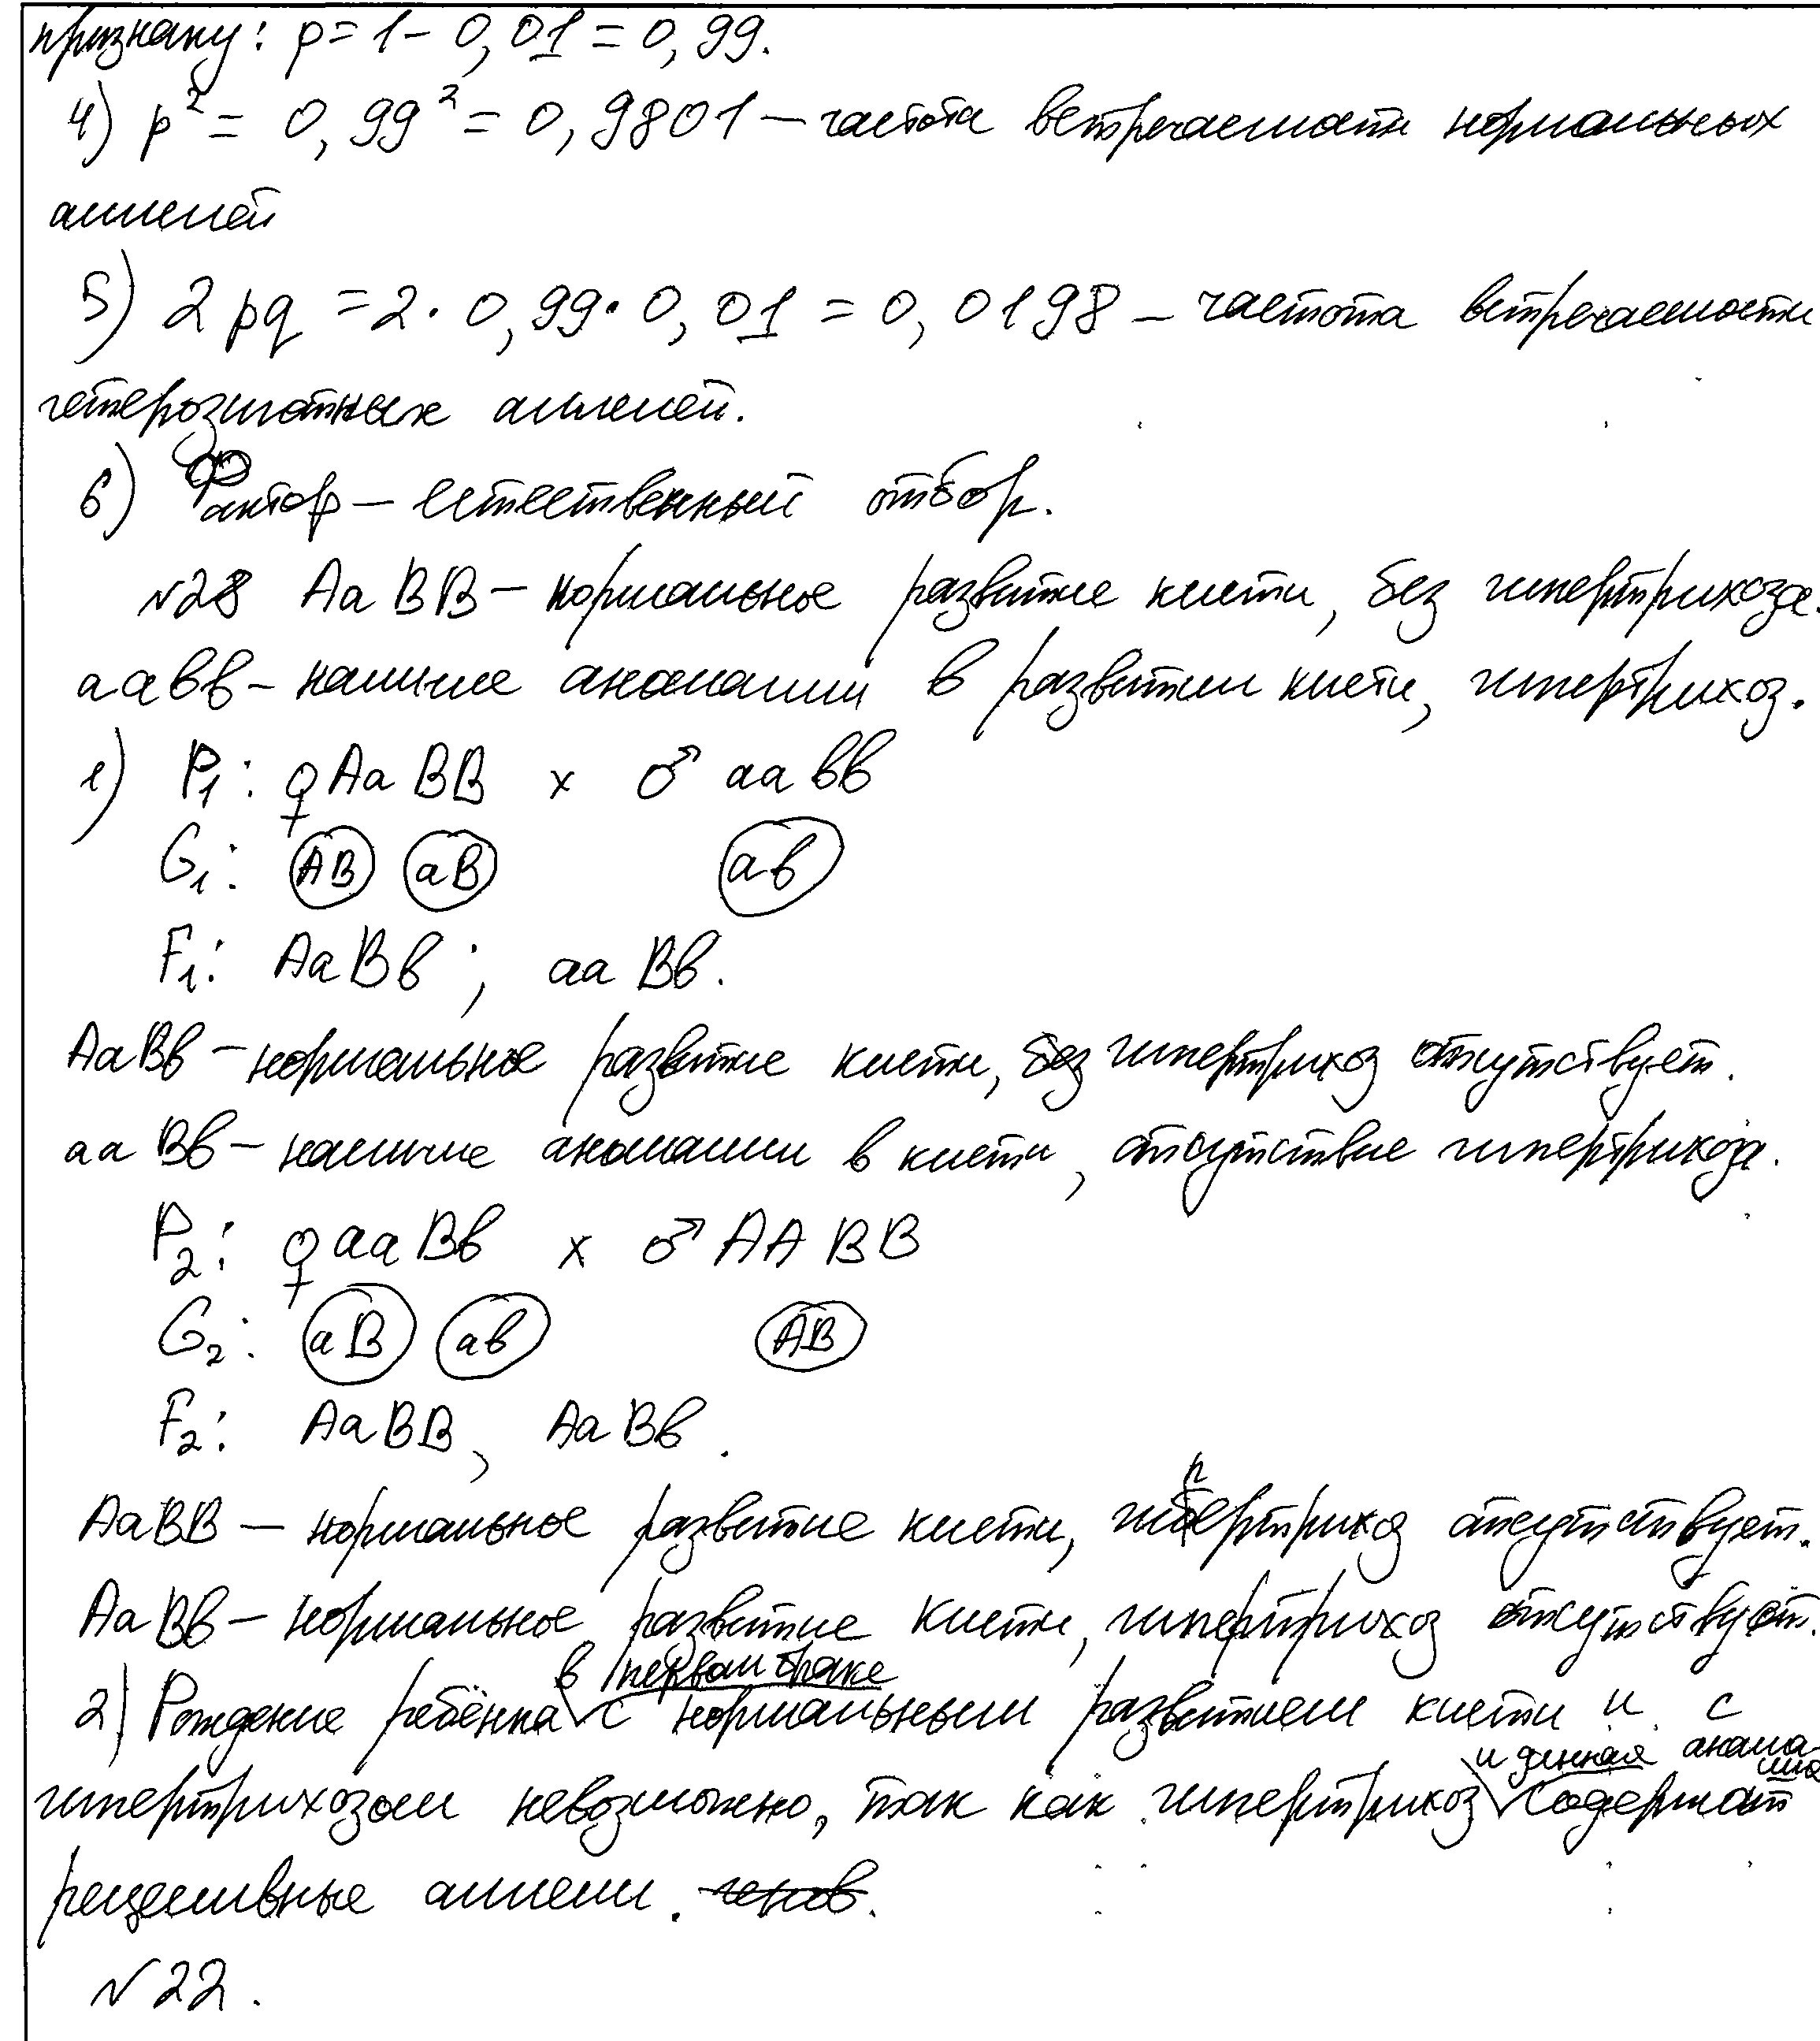 признаку: p = 1 - 0,01 = 0,99.
4) p² = 0,99² = 0,9801 — частота встречаемости нормальных
аллелей
5) 2pq = 2·0,99·0,01 = 0,0198 — частота встречаемости
гетерозиготных аллелей.
6) Фактор — естественный отбор.
№28 AaBB — нормальное развитие кисти, без гипертрихоза.
aaвв — наличие аномалии в развитии кисти, гипертрихоз.
1) P₁: ♀ AaBB x ♂ aaвв
G₁: AB aB aв
F₁: AaBв ; aaBв.
AaBв — нормальное развитие кисти, без гипертрихоз отсутствует.
aaBв — наличие аномалии в кисти, отсутствие гипертрихоза.
P₂: ♀ aaBв x ♂ AABB
G₂: aB aв AB
F₂: AaBB, AaBв.
AaBB — нормальное развитие кисти, гипертрихоз отсутствует.
AaBв — нормальное развитие кисти, гипертрихоз отсутствует.
2) Рождение ребёнка в первом браке с нормальным развитием кисти и с
гипертрихозом невозможно, так как гипертрихоз и данная аномалия содержат
рецессивные аллели. генов.
№22.